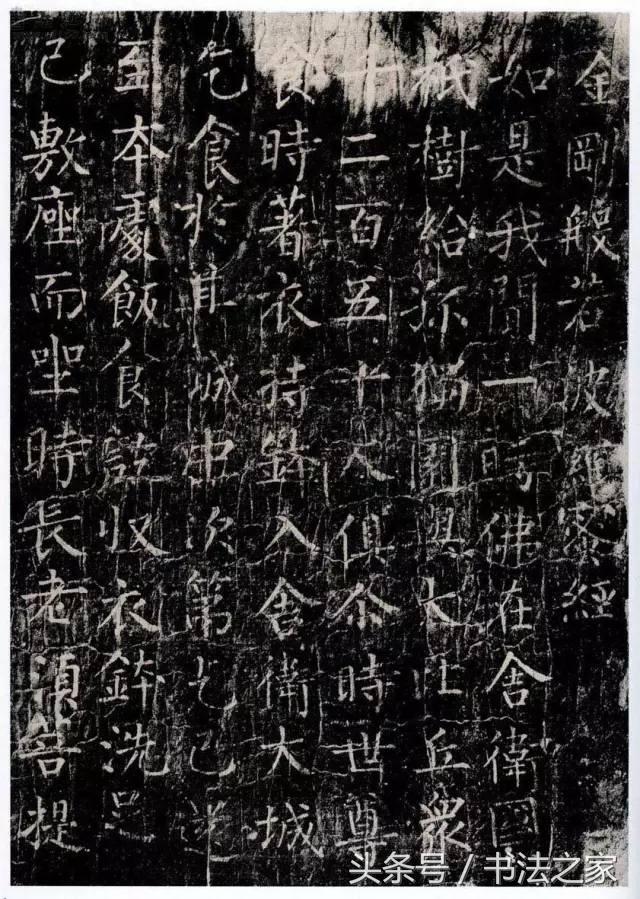 金剛般若波羅蜜經
如是我聞一時佛在舍衛國
祇樹給孤獨園與大比丘衆
千二百五十人俱尒時世尊
食時著衣持鉢入舍衛大城
乞食於其城中次第乞已還
至本處飯食訖收衣鉢洗足
已敷座而坐時長老須菩提
头条号／书法之家